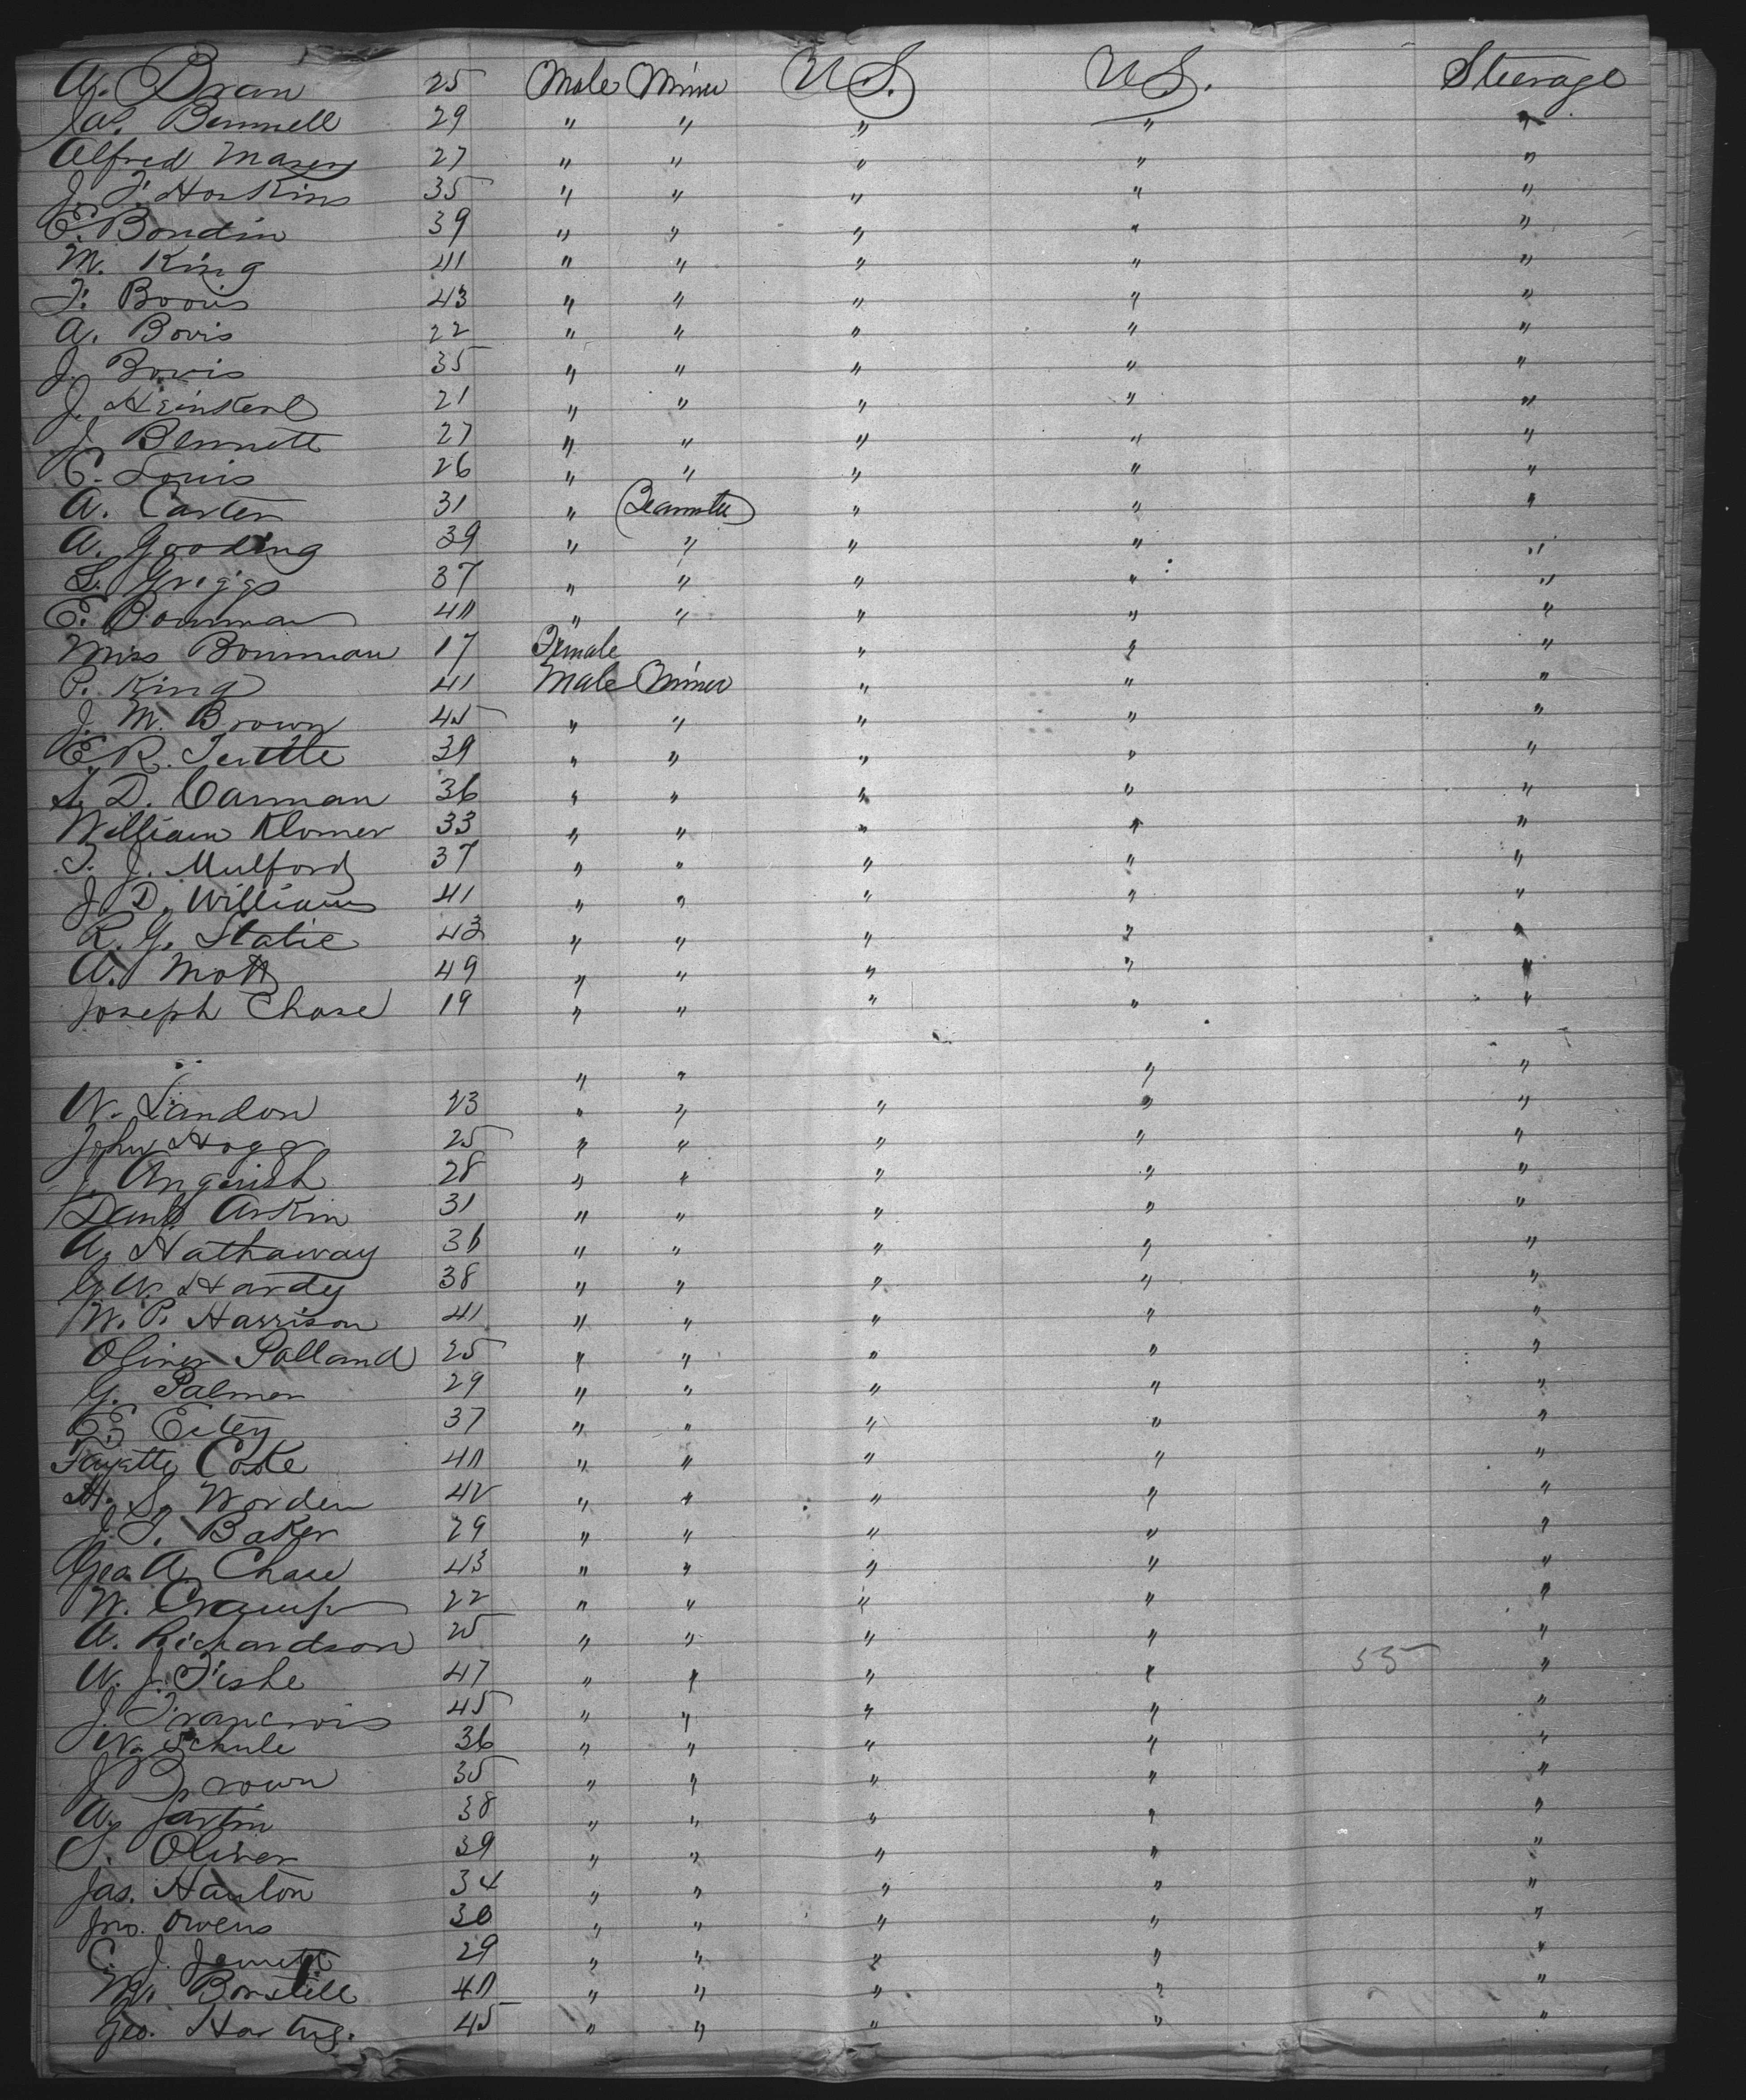 A. Dran 25 Male Miner U.S. U.S. Steerage
Jas. Bennell 29 " " " " "
Alfred Maxey 27 " " " " "
J. F. Hoskins 35 " " " " "
E. Bondin 39 " " " " "
M. King 41 " " " " "
F. Bovis 43 " " " " "
A. Bovis 22 " " " " "
J. Bovis 35 " " " " "
J. 21 " " " " "
J. Bennett 27 " " " " "
C. Louis 26 " " " " "
A. Carter 31 " " " "
A. Gooding 39 " " " " "
L. Griggs 37 " " " " "
E. Bowman 40 " " " " "
Miss Bowman 17 Female " " "
P. King 41 Male Miner " " "
J. M. Brown 45 " " " " "
E. R. Tuttle 39 " " " " "
S. D. Carman 36 " " " " "
William Klomer 33 " " " " "
T. J. Mulford 37 " " " " "
J. D. Williams 41 " " " " "
R. G. Statie 43 " " " " "
A. Mott 49 " " " " "
Joseph Chase 19 " " " " "
" " " "
W. Landon 23 " " " " "
John Hogg 25 " " " " "
J. Angerish 28 " " " " "
Danl. Arkin 31 " " " " "
A. Hathaway 36 " " " " "
G. W. Hardy 38 " " " " "
W. P. Harrison 41 " " " " "
Oliver Polland 25 " " " " "
G. Palmer 29 " " " " "
E. Estey 37 " " " " "
Fayette Cooke 40 " " " " "
H. S. Worden 42 " " " " "
J. T. Baker 29 " " " " "
Geo. A. Chase 43 " " " " "
W. Cramp 22 " " " " "
A. Richardson 25 " " " " "
W. J. Fishe 47 " " " " 55 "
J. Francois 45 " " " " "
W. Schule 36 " " " " "
J. Brown 35 " " " " "
A. Jartin 38 " " " " "
S. Oliver 39 " " " " "
Jas. Hanton 34 " " " " "
Jno. Owens 30 " " " " "
C. J. Jewett 29 " " " " "
M. 40 " " " " "
Geo. Hartug. 45 " " " " "